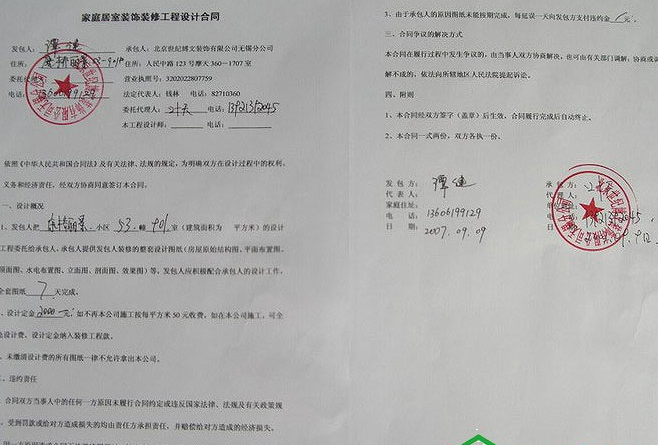 家庭居室装饰装修工程设计合同
发包人： 谭建 承包人：北京世纪博文装饰有限公司无锡分公司
住所： 53-901# 住所：人民中路 123 号摩天 360—1707 室
委托代 营业执照号：3202022807759
电话： 13606199129 法定代表人：钱林 电话：82710360
委托代理人： 电话：
本工程设计师： 电话：
依照《中华人民共和国合同法》及有关法律、法规的规定，为明确双方在设计过程中的权利、
义务和经济责任，经双方协商同意签订本合同。
一、设计概况
1、发包人把 小区 53 幢 901 室（建筑面积为 平方米）的设计
工程委托给承包人。承包人提供发包人装修的整套设计图纸（房屋原始结构图、平面布置图、
顶面图、水电布置图、立面图、剖面图、效果图）等，发包人应积极配合承包人的设计工作，
全套图纸 7 天完成。
、设计定金 2000 元；如不再本公司施工按每平方米 50 元收费，如在本公司施工，可全
免设计费，设计定金纳入装修工程款。
、未缴清设计费的所有图纸一律不允许拿出本公司。
二、违约责任
、合同双方当事人中的任何一方原因未履行合同约定或违反国家法律、法规及有关政策规
，受到罚款或给对方造成损失的均由责任方承担责任，并赔偿给对方造成的经济损失。
3、由于承包人的原因图纸未能按期完成，每延误一天向发包方支付违约金 元。
三、合同争议的解决方式
本合同在履行过程中发生争议的，由当事人双方协商解决，也可由有关部门调解；协商或调
解不成的，依法向所辖地区人民法院提起诉讼。
四、附则
1、本合同经双方签字（盖章）后生效，合同履行完成后自动终止。
2、本合同一式两份，双方各执一份。
发包方： 谭建 承包方：
代表人： 代表人：
家庭住址：
电话： 13606199129
日期： 2007.09.09